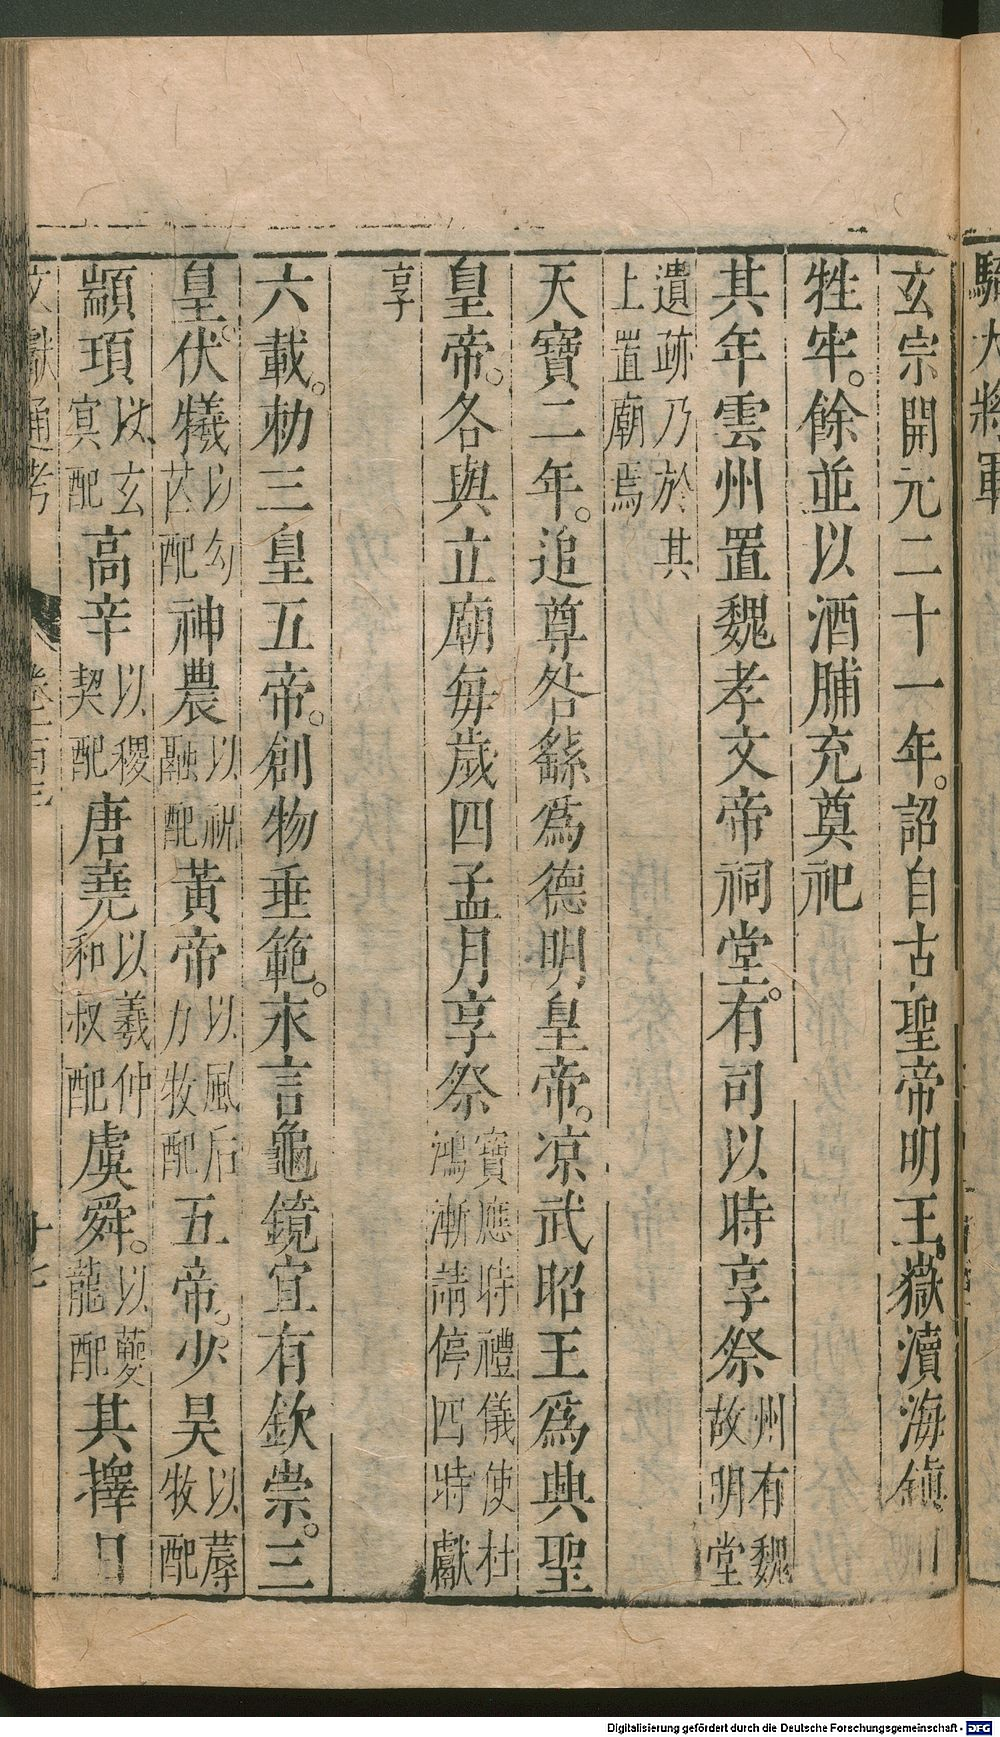 驃大將軍
玄宗開元二十一年。詔自古聖帝明王。嶽瀆海鎮用
牲牢。餘並以酒脯充奠祀
其年雲州置魏孝文帝祠堂。有司以時享祭州有魏故明堂
遺跡乃於其上置廟焉
天寶二年。追尊咎繇爲德明皇帝。凉武昭王爲興聖
皇帝。各與立廟每歲四孟月享祭寶應時禮儀使杜鴻漸請停四時獻
享
六載。勅三皇五帝。創物垂範。永言龜鏡宜有欽崇。三
皇。伏犧以勾芒配神農以祝融配黃帝以風后力牧配五帝。少昊以蓐牧配
顓頊以玄冥配高辛以稷契配唐堯以羲仲和叔配虞舜。以夔龍配其擇日
文獻通考 卷一百三 十七
Digitalisierung gefördert durch die Deutsche Forschungsgemeinschaft - DFG